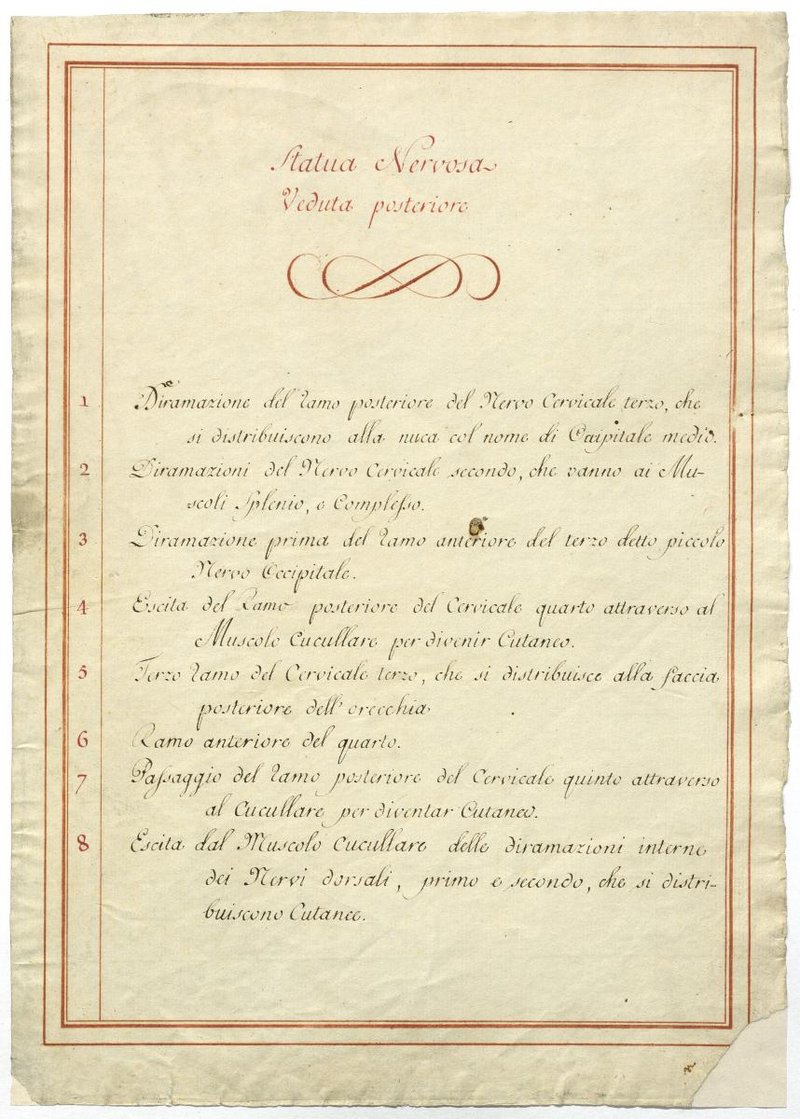 Statua Nervosa
Veduta posteriore
1 Diramazione del ramo posteriore del Nervo Cervicale terzo, che
si distribuiscono alla nuca col nome di Occipitale medio.
2 Diramazioni del Nervo Cervicale secondo, che vanno ai Mu-
scoli Splenio, e Complesso.
3 Diramazione prima del ramo anteriore del terzo detto piccolo
Nervo Occipitale.
4 Escita del Ramo posteriore del Cervicale quarto attraverso al
Muscolo Cucullare per divenir Cutaneo.
5 Terzo ramo del Cervicale terzo, che si distribuisce alla faccia
posteriore dell' orecchia
6 Ramo anteriore del quarto.
7 Passaggio del ramo posteriore del Cervicale quinto attraverso
al Cucullare per diventar Cutaneo.
8 Escita dal Muscolo Cucullare delle diramazioni interne
dei Nervi dorsali, primo e secondo, che si distri-
buiscono Cutanee.